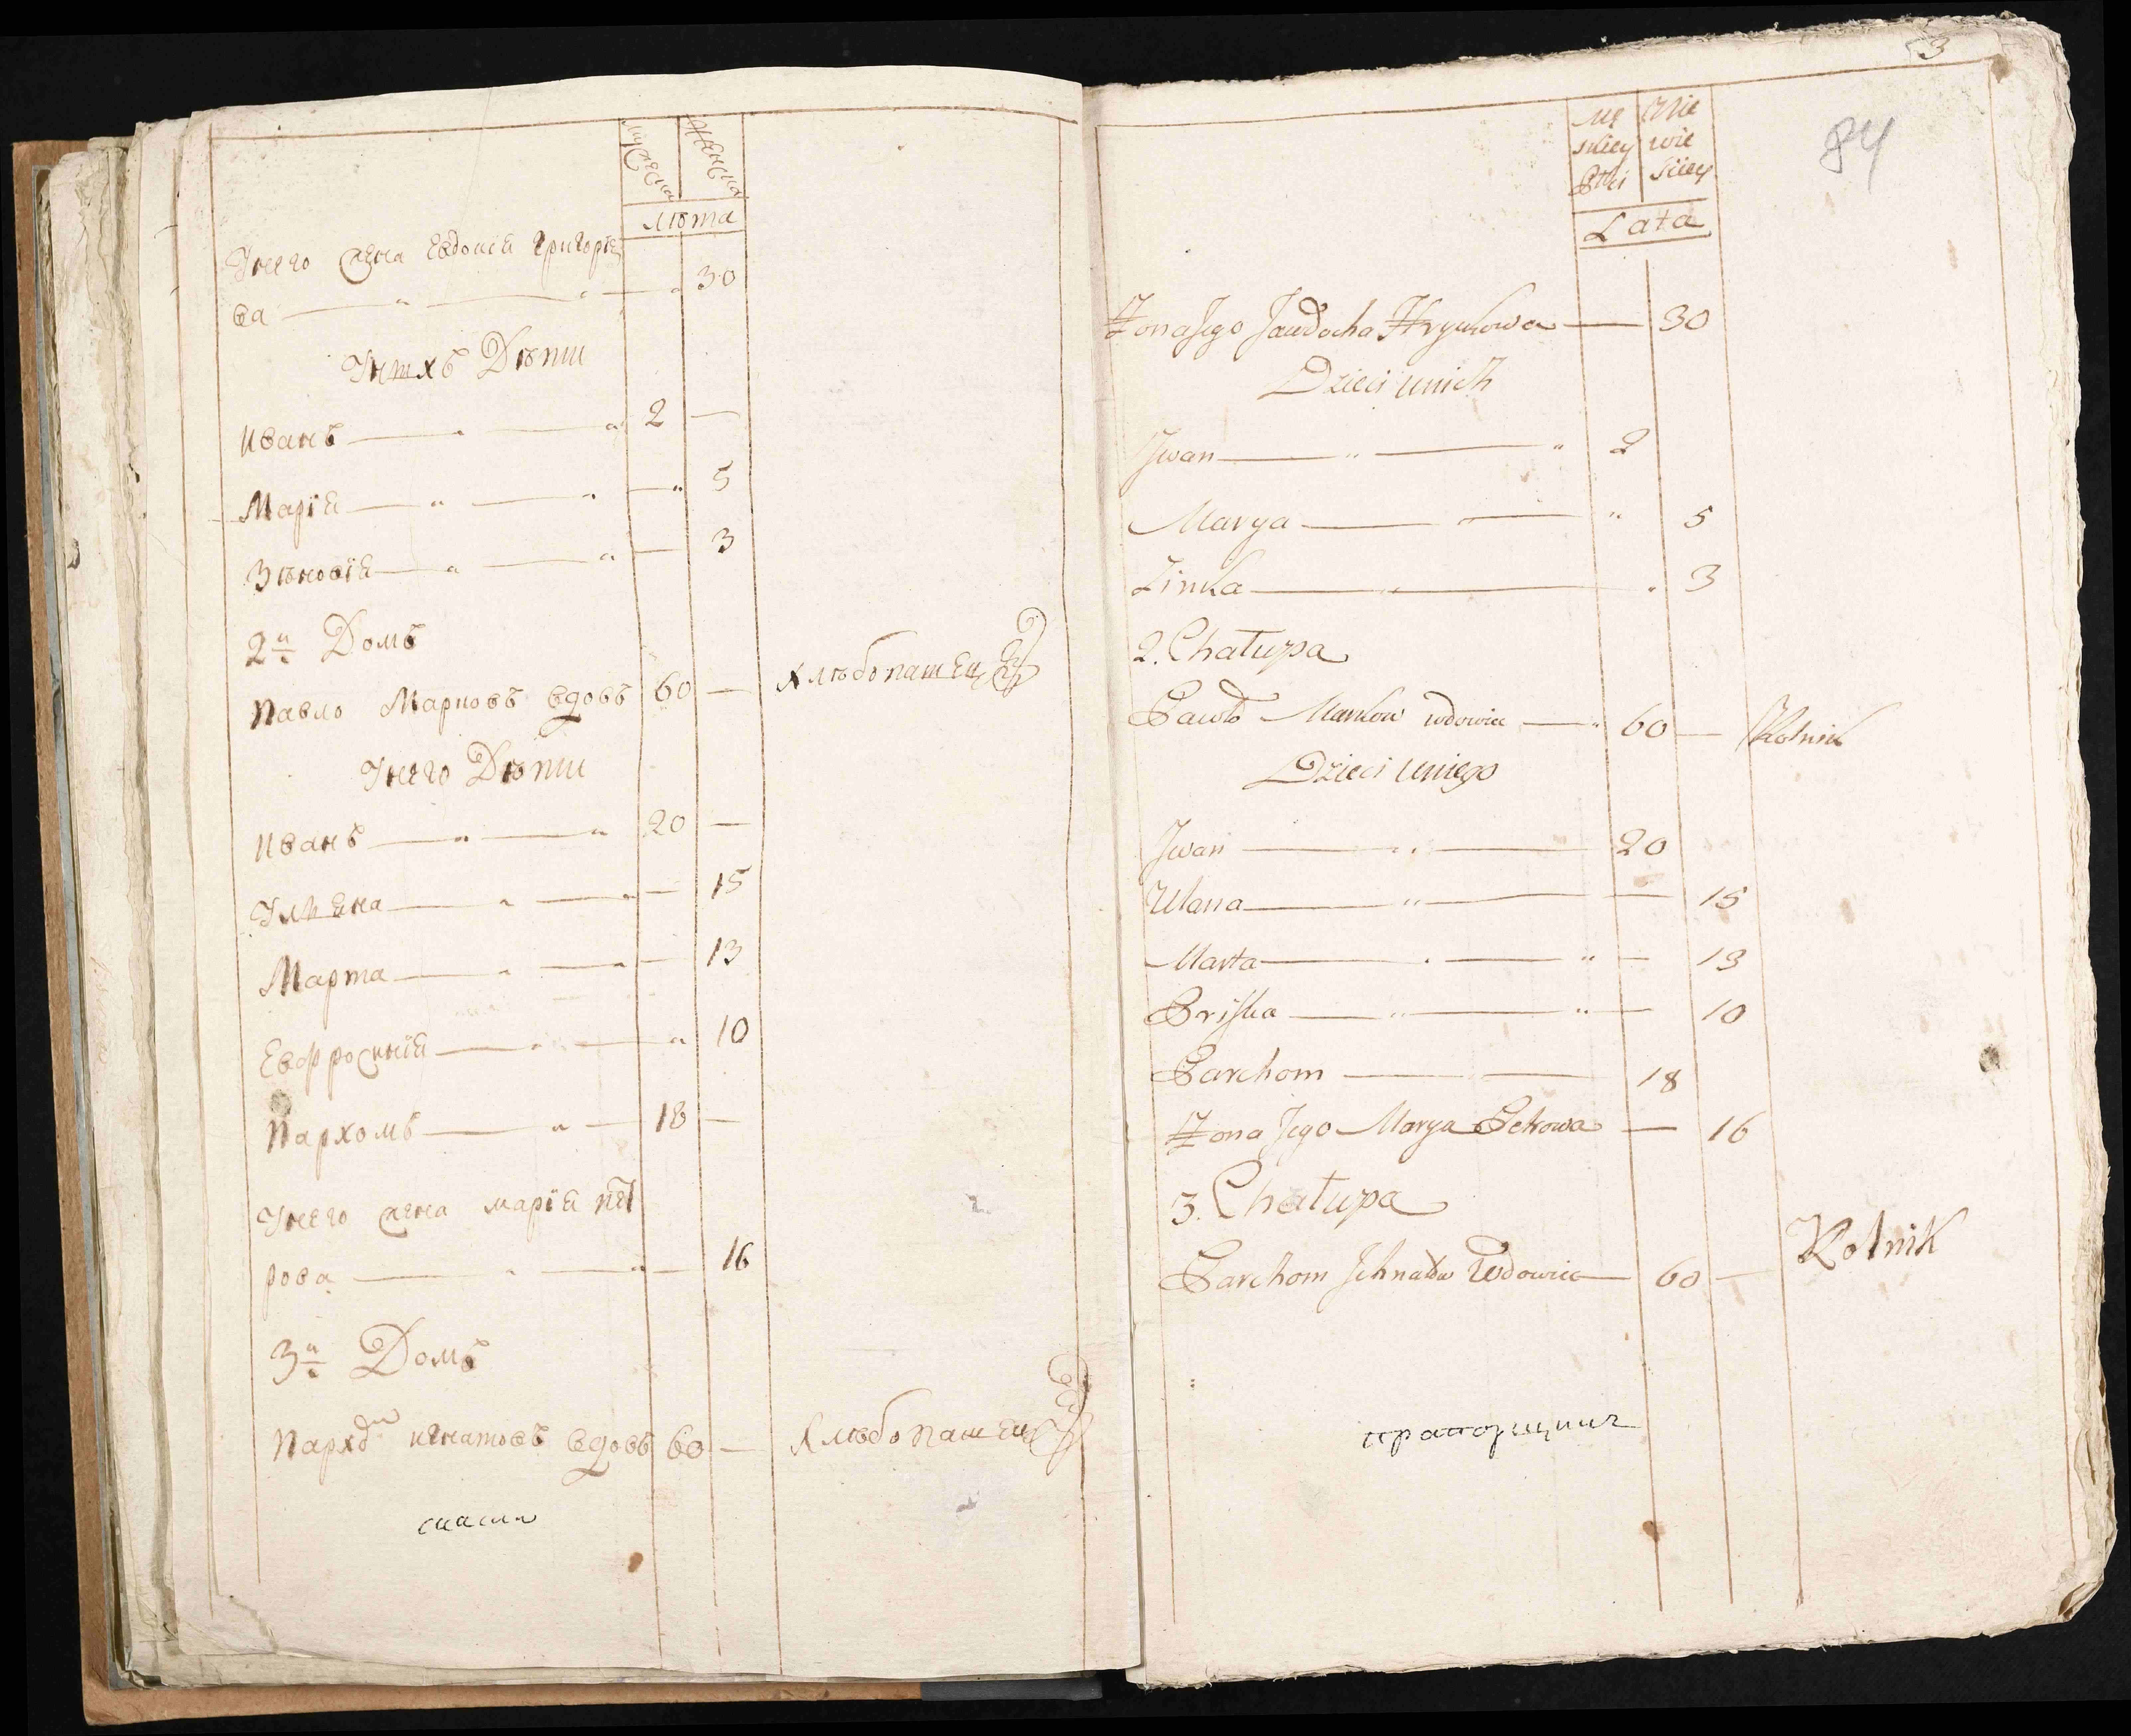 мужеска
женска
лѣта
Унего жена Евдокїя Григорїе
ва — 30
Унихъ Дѣти
Иванъ — 2 —
Марїя — 5
Зѣновїя — 3
2й Домъ
Павло Марковъ вдовъ 60 — Хлѣбопашецъ
Унего Дѣти
Иванъ — 20 —
Ульяна — 15
Марта — 13
Евфросинїя — 10
Пархомъ — 18 —
Унего жена марїя пет
рова — 16
3й Домъ
Пархом игнатовъ вдовъ 60 — Хлѣбопашецъ
3
84
Mę Nie
skiey wie
Płci sciey
Lata
Żona Jego Jawdocha Hrykowa — 30
Dzieci unich
Jwan — 2
Marya — 5
Zinka — 3
2. Chałupa
Pawło Markow wdowiec — 60 — Rolnik
Dzieci uniego
Jwan — 20
Ulana — 15
Marta — 13
Priska — 10
Parchom — 18
Żona Jego Marya Petrowa — 16
3. Chałupa
Parchom Jhnatów Wdowiec — 60 — Rolnik
прапорщикъ